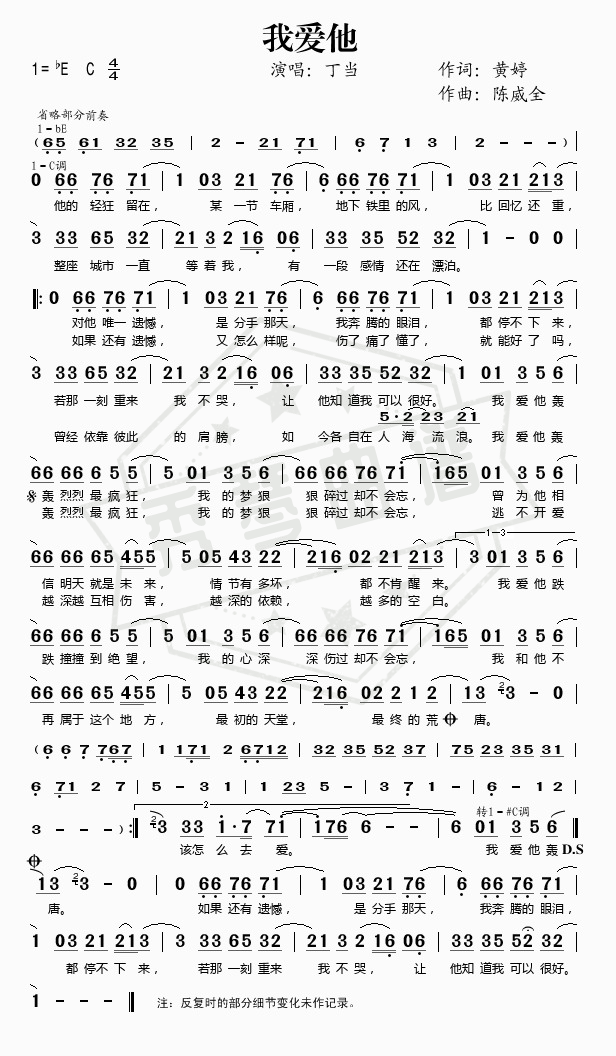 我爱他
1=♭E C 4/4
演唱：丁当
作词：黄婷
作曲：陈威全
省略部分前奏
1-bE
(65 61 32 35 | 2 - 21 71 | 6 7 1 3 | 2 - - -) |
1-C调
0 66 76 71 | 1 03 21 76 | 6 66 76 71 | 1 03 21 213 |
他的 轻狂 留在， 某 一节 车厢， 地下 铁里 的风， 比 回忆 还 重，
3 33 65 32 | 21 3 2 16 06 | 33 35 52 32 | 1 - 0 0
整座 城市 一直 等 着 我， 有 一段 感情 还在 漂泊。
‖: 0 66 76 71 | 1 03 21 76 | 6 66 76 71 | 1 03 21 213 |
对他 唯一 遗憾， 是 分手 那天， 我奔 腾的 眼泪， 都 停不 下 来，
如果 还有 遗憾， 又 怎么 样呢， 伤了 痛了 懂了， 就 能好 了 吗，
3 33 65 32 | 21 3 2 16 06 | 33 35 52 32 | 1 01 3 5 6 |
若那 一刻 重来 我 不 哭， 让 他知 道我 可以 很好。 我 爱 他 轰
5·2 23 23 21
曾经 依靠 彼此 的 肩 膀， 如 今各 自在 人 海 流 浪。 我 爱 他 轰
66 66 6 5 5 | 5 01 3 5 6 | 66 66 76 71 | 165 01 3 5 6 |
轰 烈烈 最 疯 狂， 我 的 梦 狠 狠 碎过 却不 会忘， 曾 为 他 相
轰 烈烈 最 疯 狂， 我 的 梦 狠 狠 碎过 却不 会忘， 逃 不 开 爱
1-3
66 66 65 455 | 5 05 43 22 | 216 02 21 213 | 3 01 3 5 6 |
信 明天 就是 未 来， 情 节有 多坏， 都 不肯 醒 来。 我 爱 他 跌
越 深越 互相 伤 害， 越 深的 依赖， 越 多的 空 白。
66 66 6 5 5 | 5 01 3 5 6 | 66 66 76 71 | 165 01 3 5 6 |
跌 撞撞 到 绝 望， 我 的 心 深 深 伤过 却不 会忘， 我 和 他 不
66 66 65 455 | 5 05 43 22 | 216 02 2 1 2 | 13 3 - 0 |
再 属于 这个 地 方， 最 初的 天堂， 最 终 的 荒 唐。
(6 6 7 767 | 1 171 2 6712 | 32 35 52 37 | 75 23 35 31 |
6 71 2 7 | 5 - 3 1 | 1 23 5 - | 3 7 1 - | 6 - 12 |
2
转1-#C调
3 - - ) :‖ 3 33 1·7 71 | 176 6 - - | 6 01 3 5 6 ‖
该怎 么 去 爱。 我 爱 他 轰 D.S
13 3 - 0 | 0 66 76 71 | 1 03 21 76 | 6 66 76 71 |
唐。 如果 还有 遗憾， 是 分手 那天， 我奔 腾的 眼泪，
1 03 21 213 | 3 33 65 32 | 21 2 2 16 06 | 33 35 52 32 |
都 停不 下 来， 若那 一刻 重来 我 不 哭， 让 他知 道我 可以 很好。
1 - - - ‖ 注：反复时的部分细节变化未作记录。